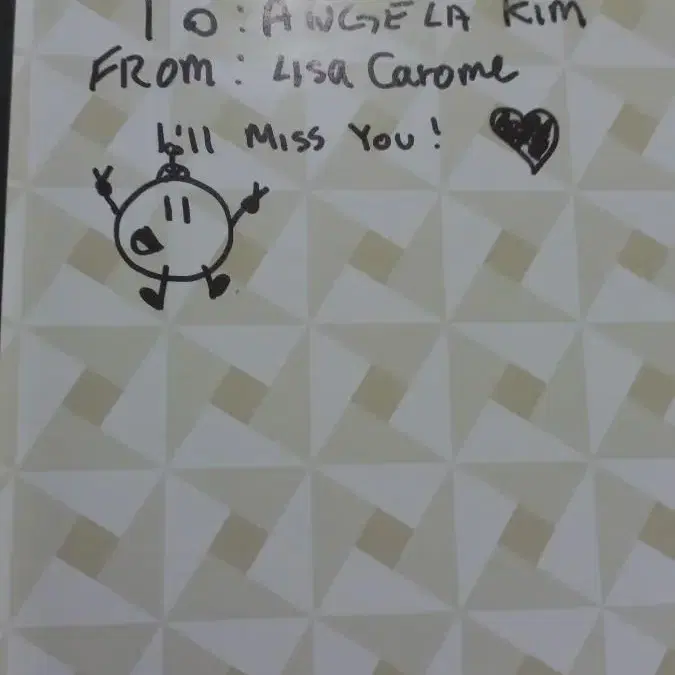 TO: ANGELA KIM
FROM: Lisa Carome
I'll Miss You!